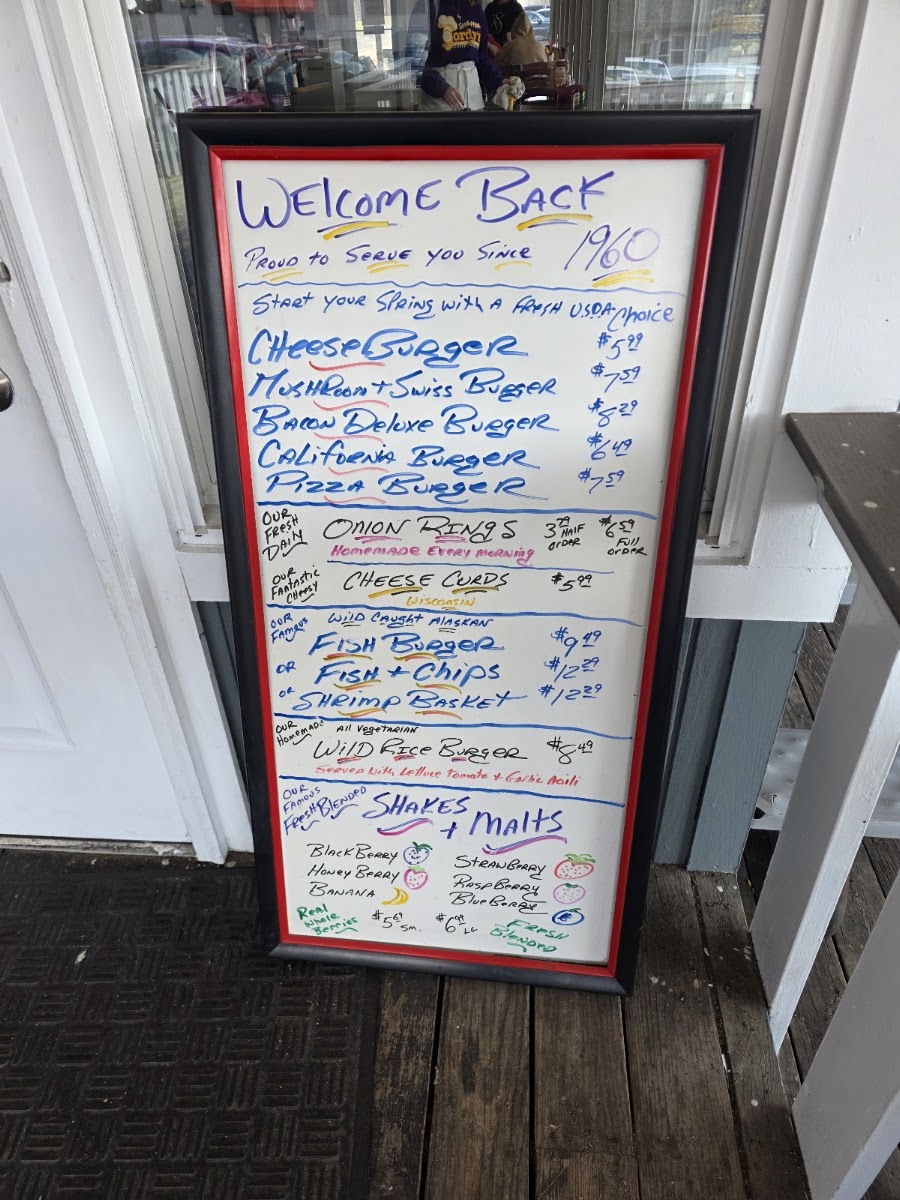 Gordy's
WELCOME BACK
PROUD to SERVE you SINCE 1960
START YOUR SPRING WITH A FRESH U.S.D.A. Choice
CHeeseBurger $5.99
MUSHROOM + SWISS BURGER $7.59
BACON DELUXE BURGER $8.29
CALIFORNIA BURGER $6.49
PIZZA BURGER $7.59
OUR FRESH DAILY
ONION RINGS 3.79 HALF ORDER $6.59 Full ORDER
HOMEMADE EVERY MORNING
OUR FANTASTIC CHEESY
CHEESE CURDS $5.99
WISCONSIN
OUR FAMOUS
WILD CAUGHT ALASKAN
FISH BURGER $9.49
OR FISH + Chips $12.29
or SHRIMP BASKET $12.29
OUR HOMEMADE
All VEGETARIAN
WILD RICE BURGER $8.49
SERVED with Lettuce Tomato + Garlic Aoili
OUR FAMOUS FRESH BLENDED
SHAKES + MALTS
BLACKBERRY
HONEYBERRY
BANANA
STRAWBERRY
RASPBERRY
BLUEBERRY
Real Whole Berries
$5.69 Sm.
$6.99 LG
FRESH BLENDED